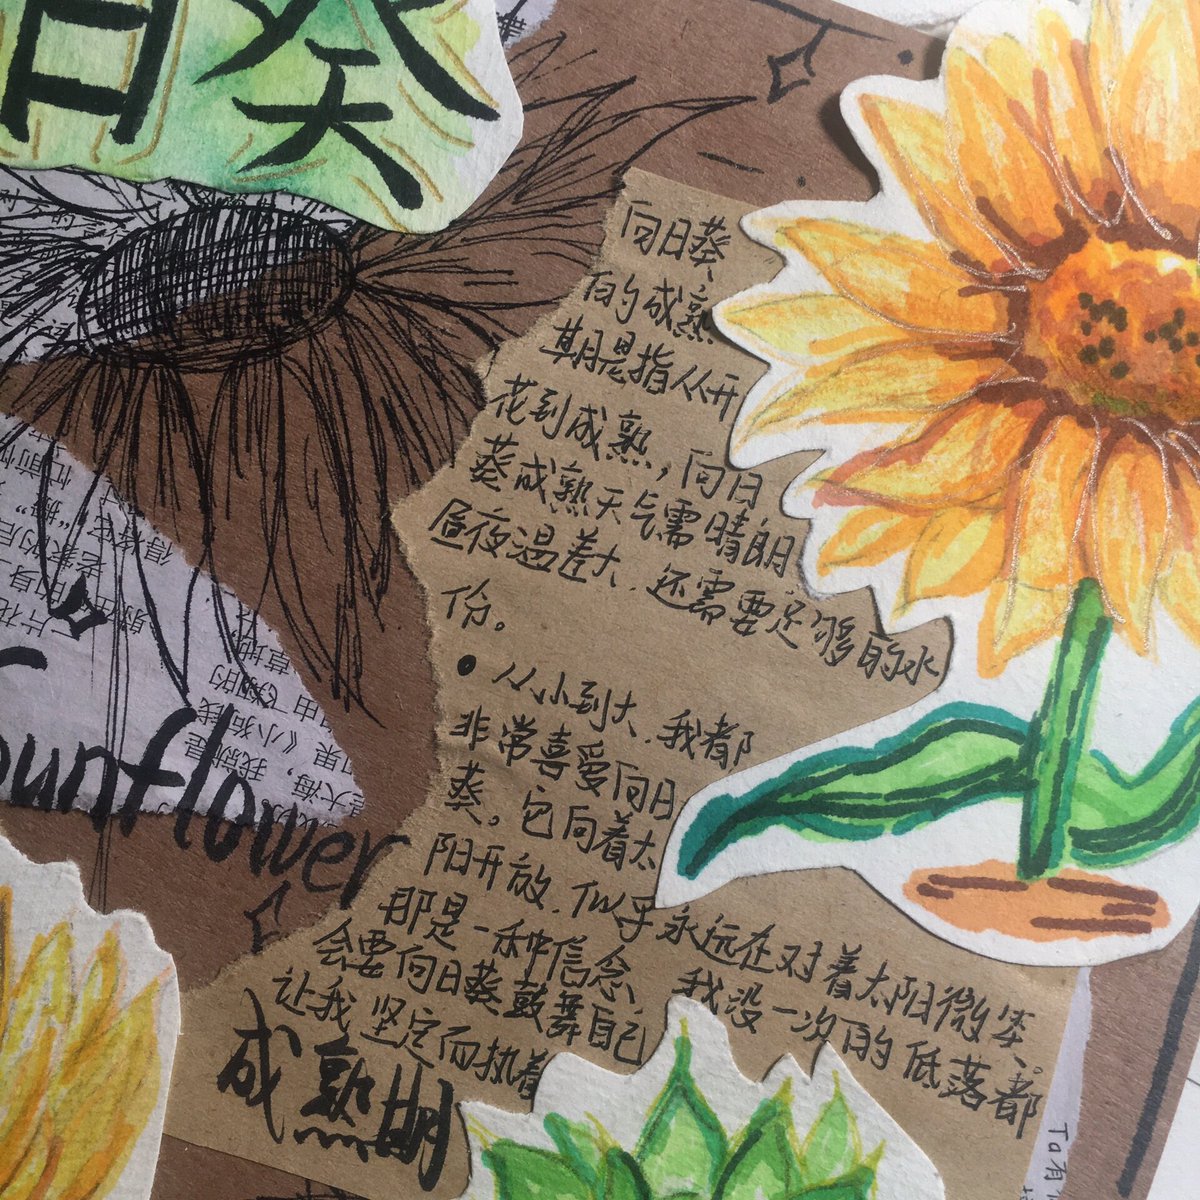 日葵
向日葵
的成熟
期是指从开
花到成熟，向日
葵成熟天气需晴朗
昼夜温差大、还需要足够的水
份。
• 从小到大、我都
非常喜爱向日
葵，它向着太
阳开放、似乎永远在对着太阳微笑、
那是一种信念、我没一次的低落都
会要向日葵鼓舞自己
让我坚定而执着
成熟期
Sunflower
大海，我就是
《小狗钱
草地
Ta有